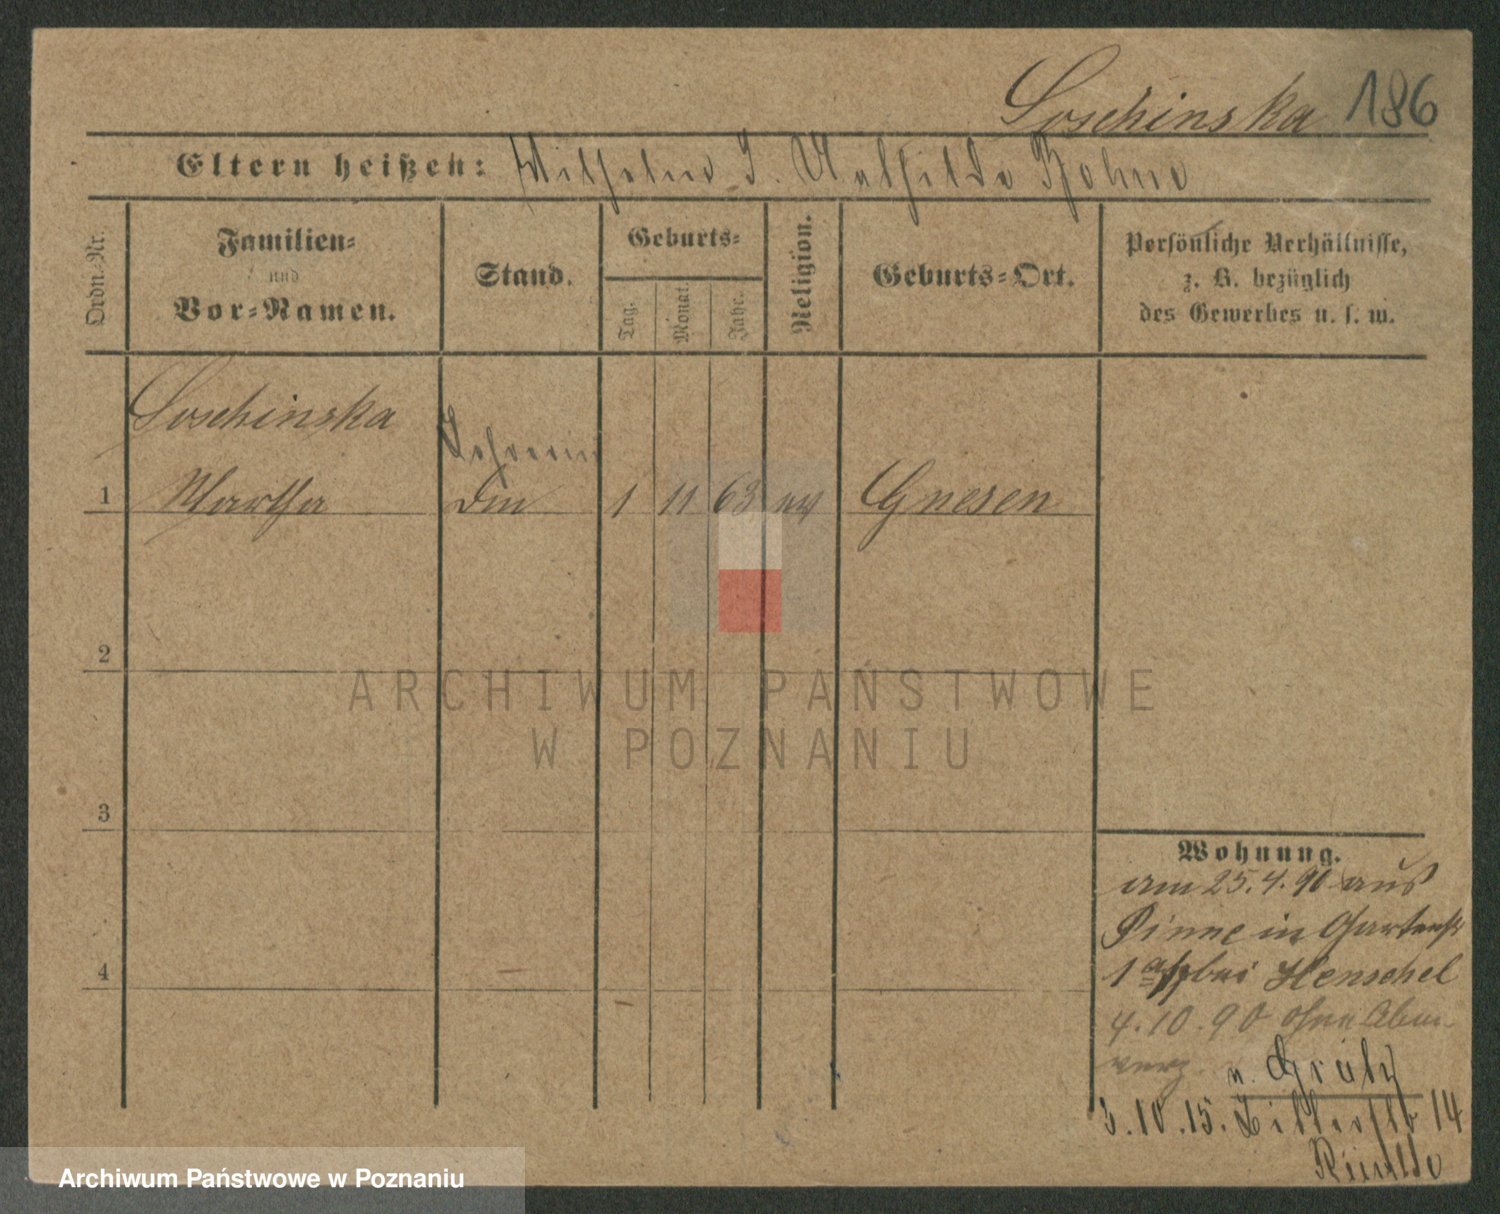 Soschinska 186
Eltern heißen: Wilhelm u. Mathilde Böhme
Ordn. Nr.
Familien=
und
Vor=Namen.
Stand.
Geburts=
Tag.
Monat.
Jahr.
Religion.
Geburts=Ort.
Persönliche Verhältnisse,
z. B. bezüglich
des Gewerbes u. s. w.
Soschinska
Lehrerin
1 Martha 1 11 63 ev Gnesen
2
3
4
Wohnung.
am 25.4.90 aus
Pinne in Gartenstr
1 bei Henschel
4.10.90 ohne Abm
verz. n. Grätz
3.10.15. 14
ARCHIWUM PAŃSTWOWE
W POZNANIU
Archiwum Państwowe w Poznaniu